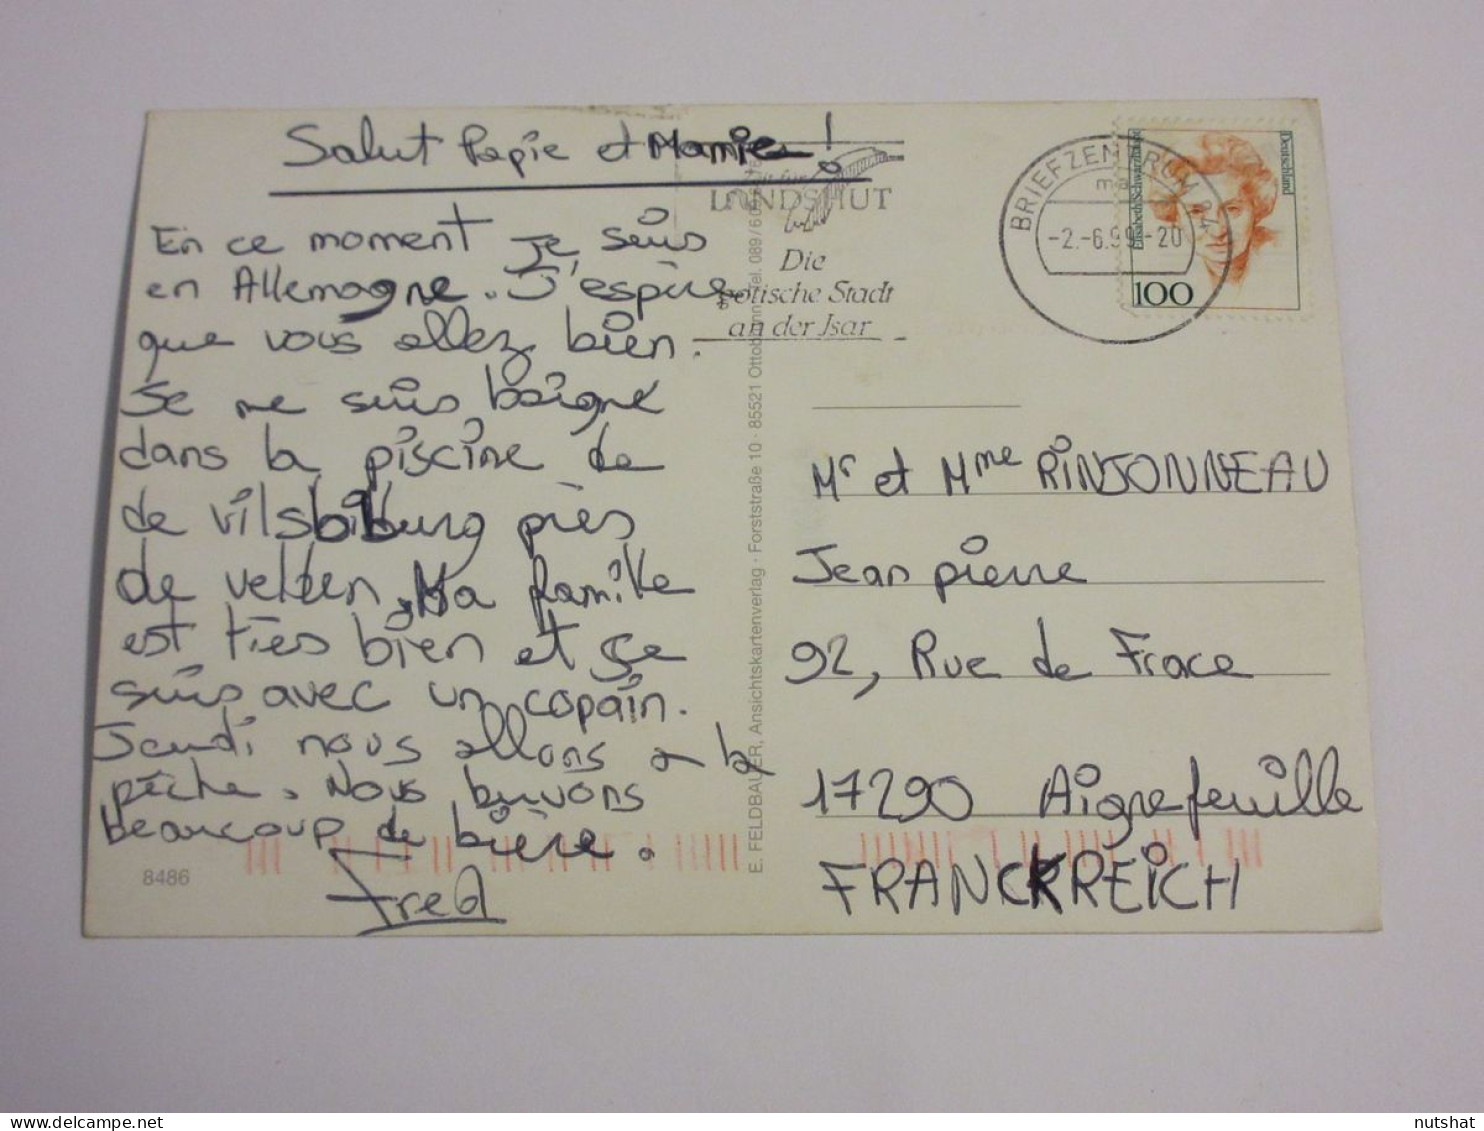 Salut Papie et Mamie !
En ce moment Je suis
en Allemagne. J'espère
que vous allez bien.
Je me suis baigné
dans la piscine de
de vilsbiburg près
de velden. Ma famille
est très bien et je
suis avec un copain.
Jeudi nous allons a la
pêche. Nous buvons
beaucoup de bière.
Fred
8486
E. FELDBAUER, Ansichtskartenverlag · Forststraße 10 · 85521 Ottobrunn · Tel. 089/
LANDSHUT
Die
gotische Stadt
an der Isar
BRIEFZENTRUM 84
ma
-2.-6.99-20
Deutschland
Elisabeth Schwarzhaupt
100
Mr et Mme RINJONNEAU
Jean pierre
92, Rue de Frace
17290 Aigrefeuille
FRANCKREICH
www.delcampe.net
nutshat